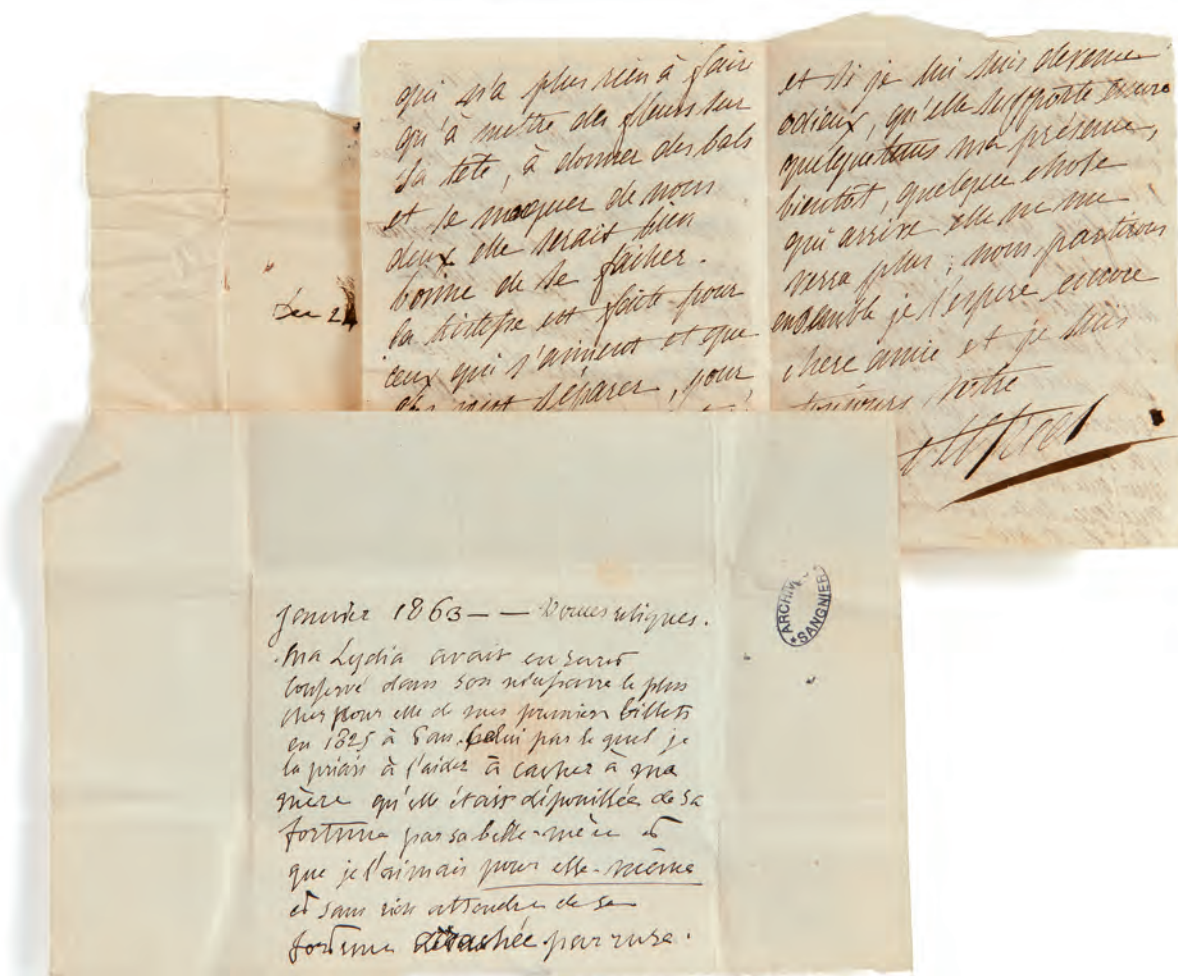 qui n'a plus rien à faire
qu'à mettre des fleurs sur
sa tête, à donner des bals
et se moquer de nous
deux elle serait bien
bonne de se fâcher.
la tristesse est faite pour
ceux qui s'aiment et que
séparer, pour
et si je lui suis devenu
odieux, qu'elle supporte encore
quelquetems ma présence,
bientot, quelque chose
qui arrive elle ne me
verra plus; nous partirons
ensemble je l'espere encore
chere amie et je suis
toujours votre
Janvier 1863 —— reliques.
Ma Lydia avait en secret
conservé dans son le plus
cher pour elle de mes premiers billets
en 1825 à Pau. Celui par lequel je
la priais à l'aider à cacher à ma
mère qu'elle était dépouillée de sa
fortune par sa belle-mère et
que je l'aimais pour elle-même
et sans rien attendre de sa
fortune par ruse.
ARCHIV
SANGNIER